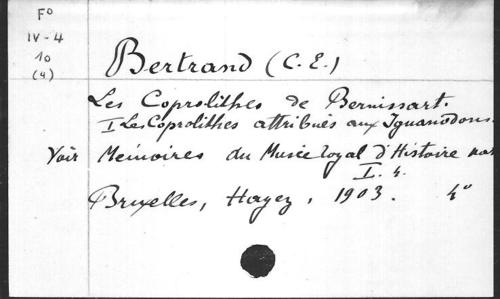 F°
IV-4
10
(4)
Bertrand (C.E.)
Les Coprolithes de Bernissart.
I Les Coprolithes attribués aux Iguanodons.
Voir Mémoires du Musée royal d'Histoire nat
I. 4.
Bruxelles, Hayez, 1903. 4°